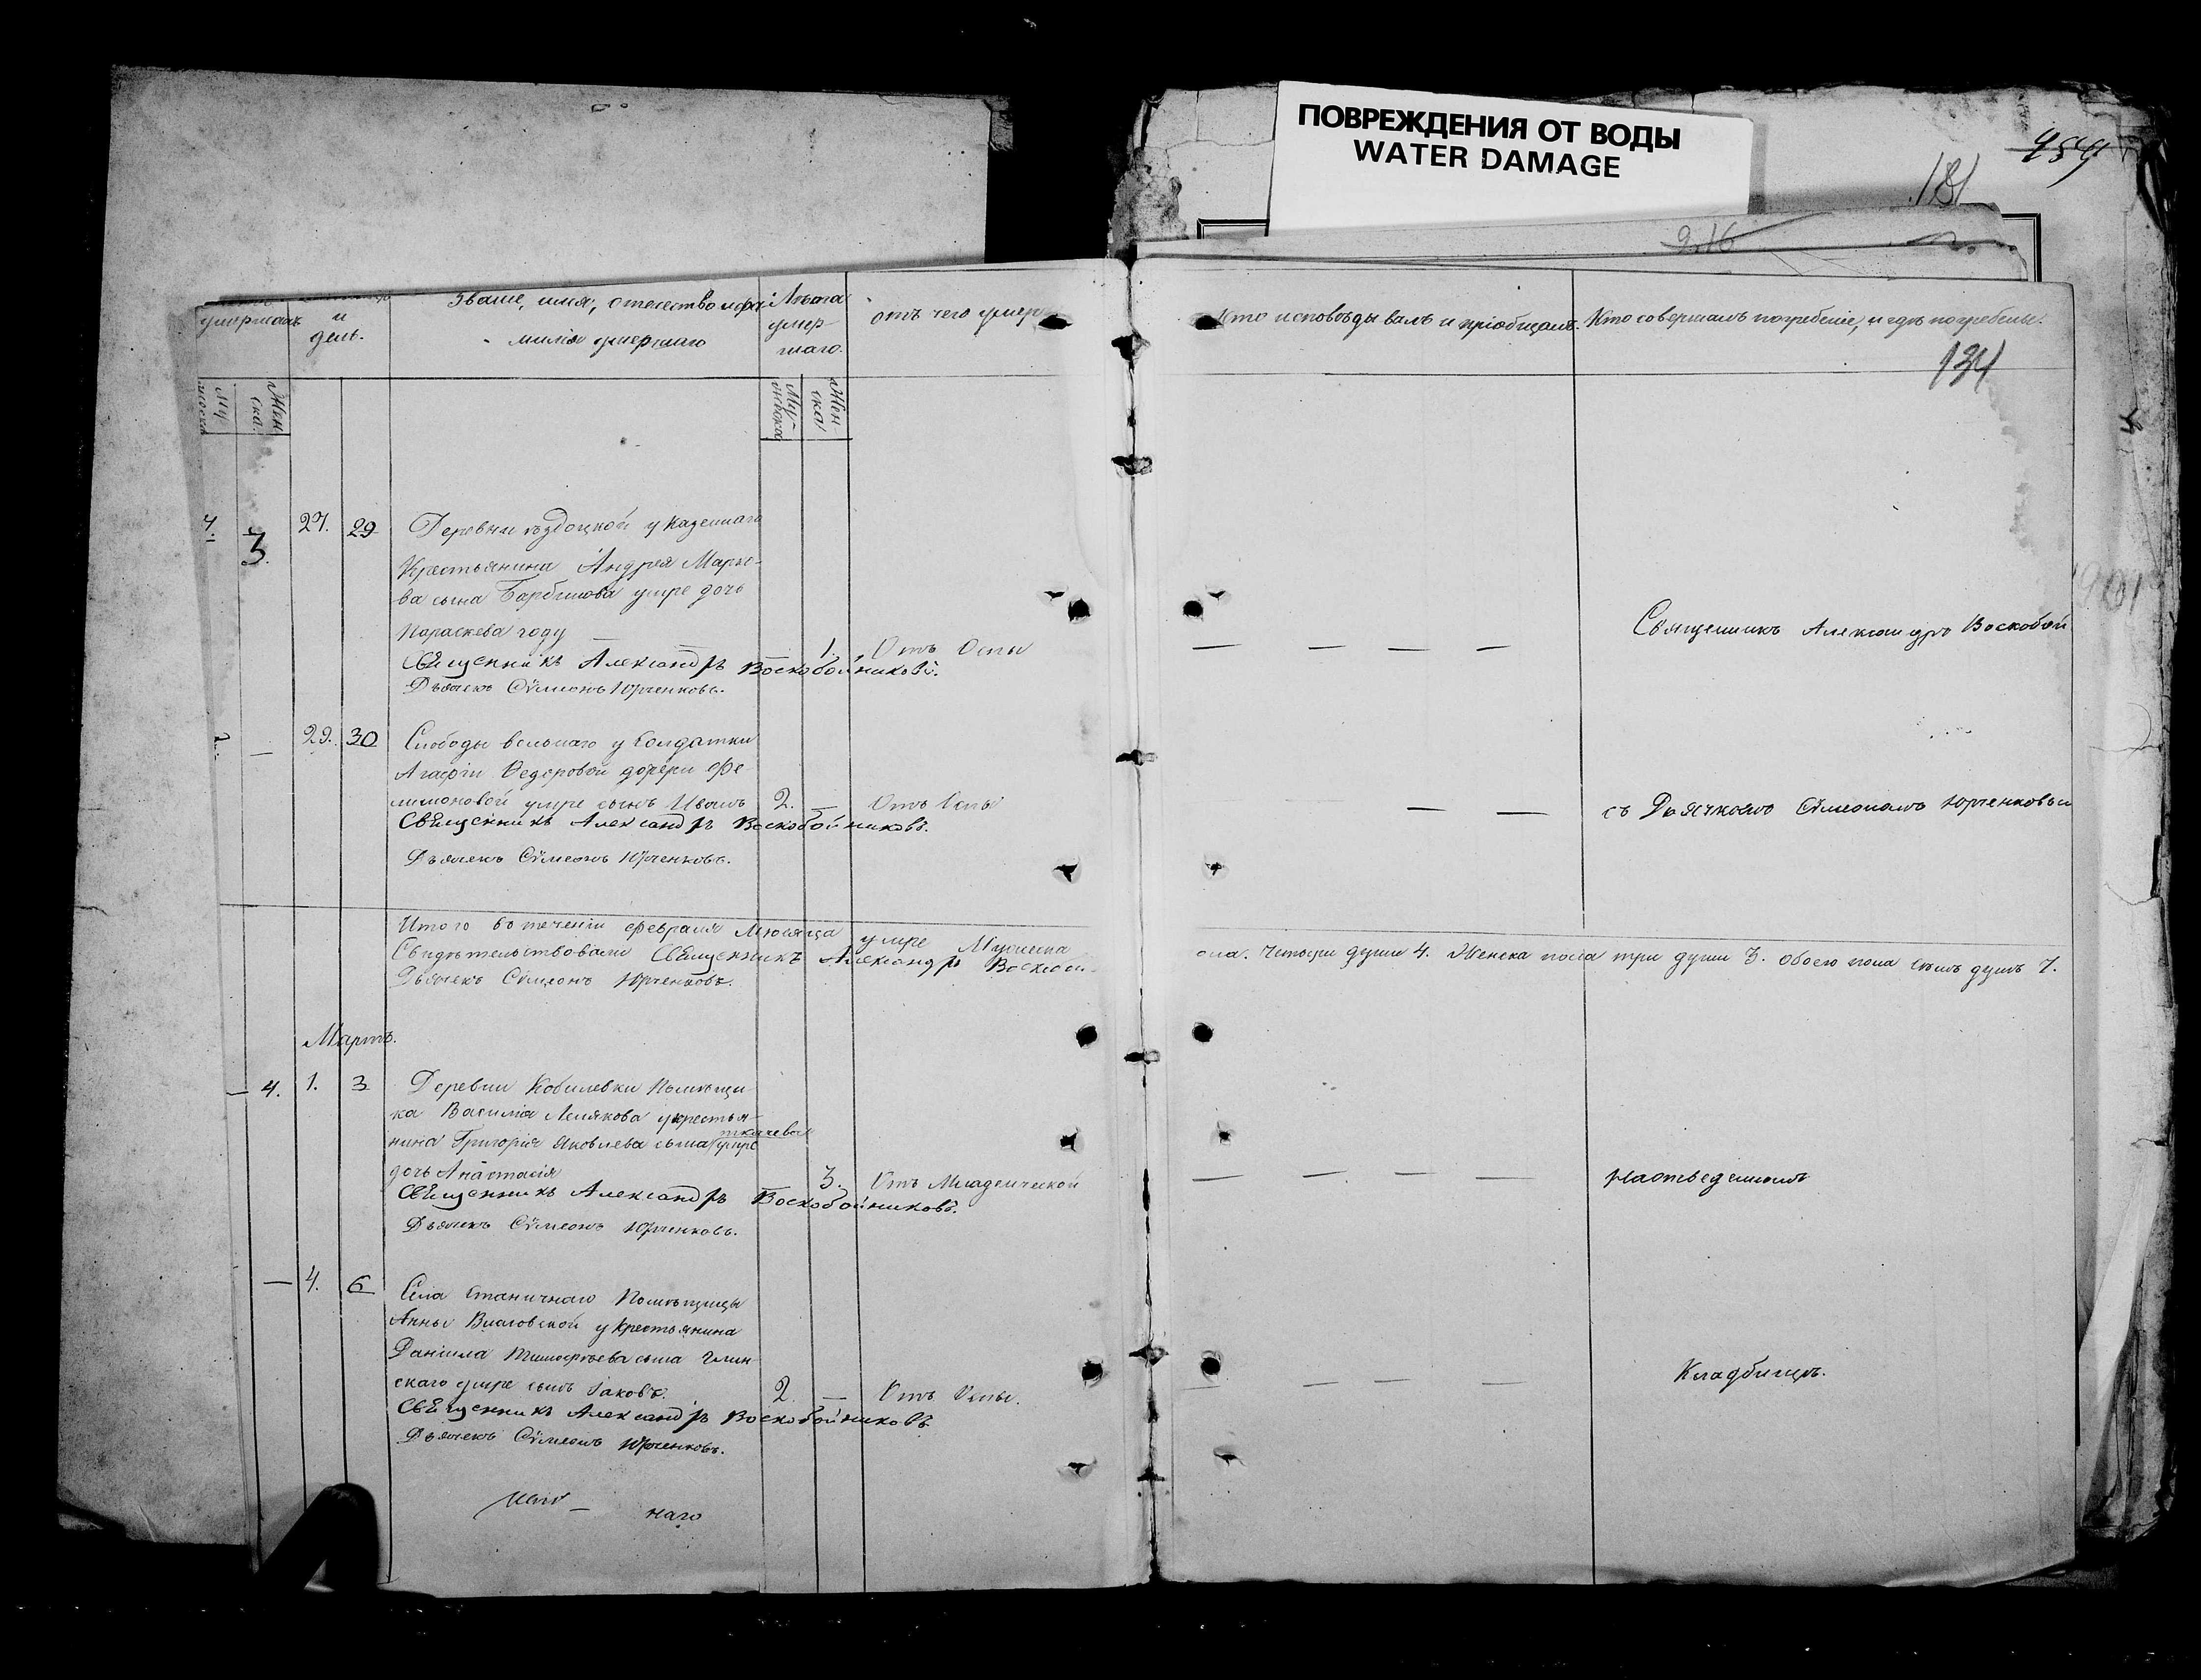 ПОВРЕЖДЕНИЯ ОТ ВОДЫ
WATER DAMAGE
181
216
134
умершихъ
и
день.
Званіе, имя, отечество и фа-
милія умершаго
Лѣта
умер-
шаго.
отъ чего умеръ
Кто исповѣдывалъ и пріобщалъ.
Кто совершалъ погребеніе, и гдѣ погребены.
Жен
ска.
Му-
жеска
Жен-
ска
4. 3. 27. 29
Деревни у казеннаго
Крестьянина Андрея Марко-
ва сына умре дочь
Параскева году
1. Отъ Оспы
Священникъ Александръ Воскобойниковъ.
Дьячекъ Сѵмеонъ Юрченковъ.
Священникъ Александръ Воскобой
— 29. 30
Слободы у Солдатки
Агафіи Федоровой дочери Фе-
лимоновой умре сынъ Иванъ
2. — Отъ Оспы
Священникъ Александръ Воскобойниковъ.
Дьячекъ Сѵмеонъ Юрченковъ.
съ Дьячкомъ Сѵмеономъ Юрченковым
Итого въ теченіи февраля Мѣсяца умре Мужеска
пола. Четыри души 4. Женска пола три души 3. обоего пола семь душъ 7.
Свидѣтельствовали Священникъ Александръ Воскобой
Дьячекъ Сѵмеонъ Юрченковъ.
Мартъ.
— 4. 1. 3
Деревни Кобилевки Помѣщи-
ка Василія у крестья-
нина Григорія Яковлева сына ткачева умре
дочь Анастасія
3. Отъ Младенческой
Священникъ Александръ Воскобойниковъ.
Дьячекъ Сѵмеонъ Юрченковъ.
На отведенномъ
— 4. 6
Села Станичнаго Помѣщицы
Анны у Крестьянина
Даніила Тимофѣева сына Глин
скаго умре сынъ Іаковъ.
2. — Отъ Оспы.
Священникъ Александръ Воскобойниковъ
Дьячекъ Сѵмеонъ Юрченковъ.
Кладбищѣ.
наго